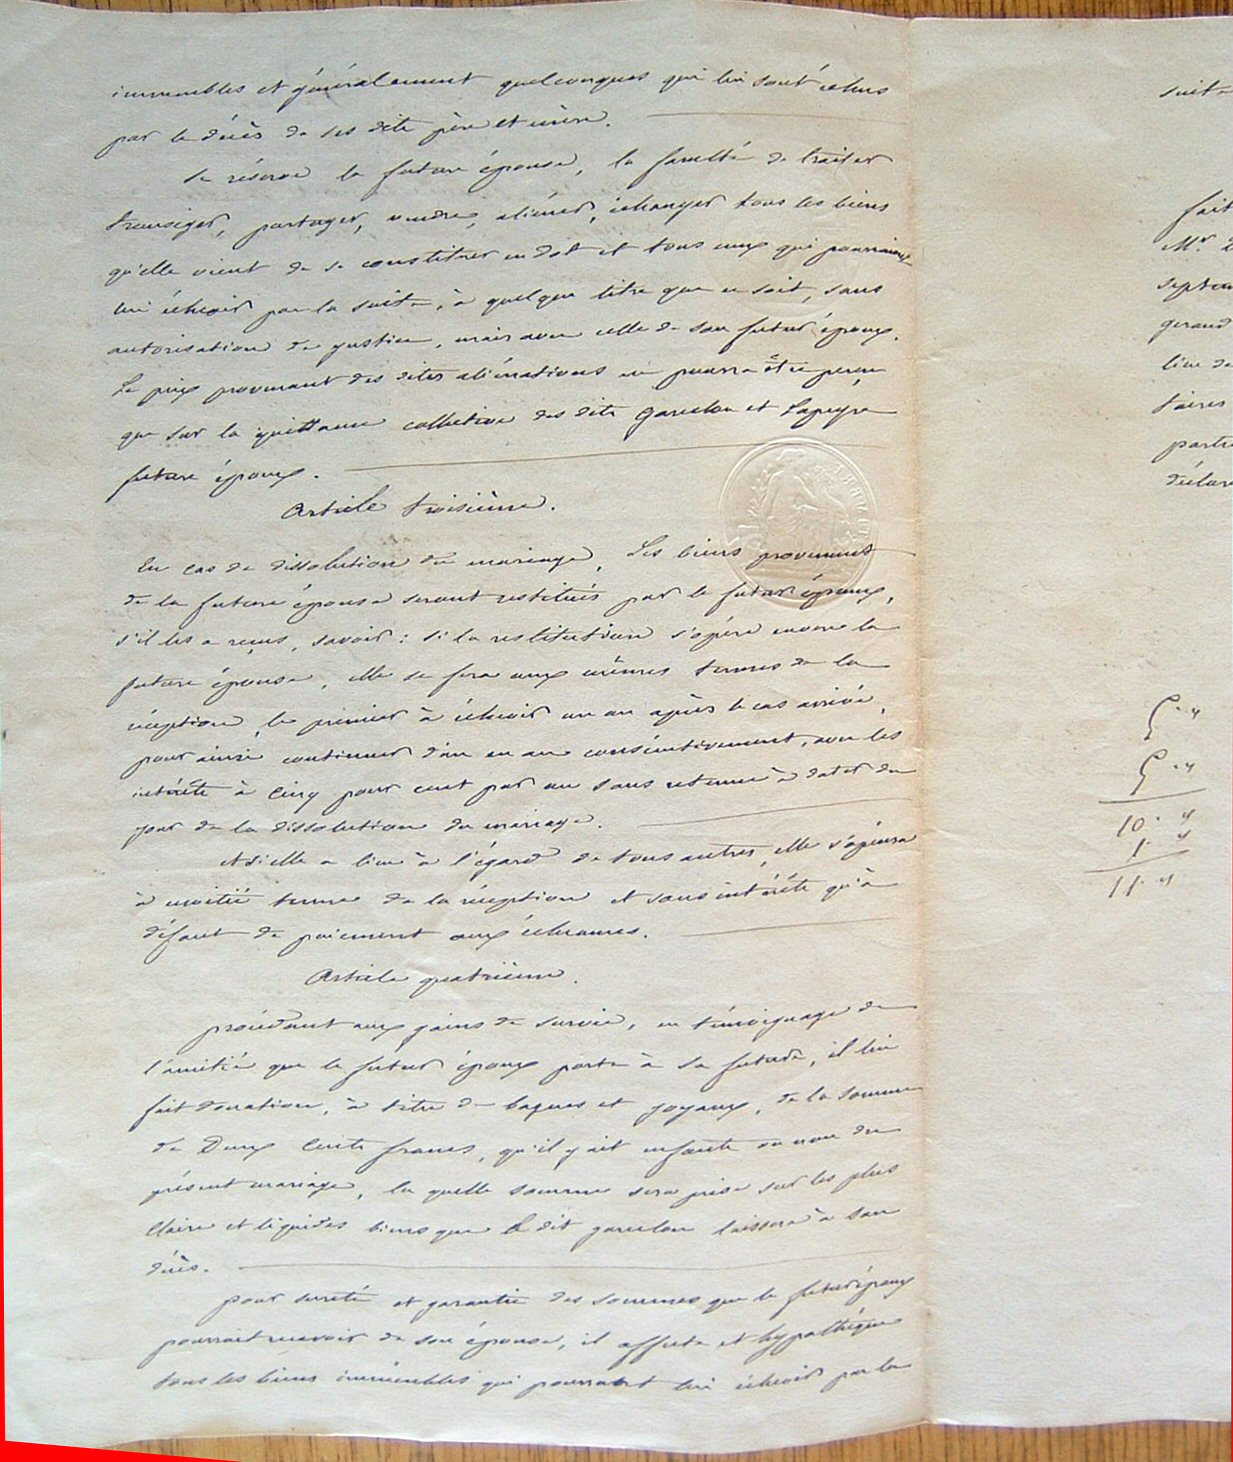 immeubles et généralement quelconques qui lui sont échus
par le décès de ses dits père et mère.
Se réserve la future épouse, la faculté de traiter
transiger, partager, vendre, aliéner, échanger tous les biens
qu'elle vient de se constituer en dot et tous ceux qui pourraient
lui échoir par la suite, à quelque titre que ce soit, sans
autorisation de justice, mais avec celle de son futur époux.
Le prix provenant des dites aliénations ne pourra être perçu
que sur la quittance collective des dits Garcelon et Lapeyre
future époux.
Article troisième.
En cas de dissolution du mariage, Les biens provenants
de la future épouse seront restitués par le futur époux,
s'il les a reçus, savoir : si la restitution s'opère envers la
future épouse, elle se fera aux mêmes termes de la
réception, le premier à échoir un an après le cas arrivé,
pour ainsi continuer d'an en an consécutivement, avec les
intérêts à cinq pour cent par an sans retenue à dater du
jour de la dissolution du mariage.
et si elle a lieu à l'égard de tous autres, elle s'opèrera
à moitié terme de la réception et sans intérêts qu'à
défaut de paiement aux échéances.
Article quatrième.
procédant aux gains de survie, en témoignage de
l'amitié que le futur époux porte à sa future, il lui
fait donation, à titre de bagues et joyaux, de la somme
de Deux Cents francs, qu'il y ait enfants ou non du
présent mariage, la quelle somme sera prise sur les plus
clairs et liquides biens que le dit garcelon laissera à son
décès.
pour sureté et garantie des sommes que le futur époux
pourrait recevoir de son épouse, il affecte et hypothèque
tous les biens immeubles qui pourront lui échoir par la
suite
fait
Mr.
septem
gerand
lieu de
taires
partie
déclar
5. "
5. "
10. "
1. "
11. "